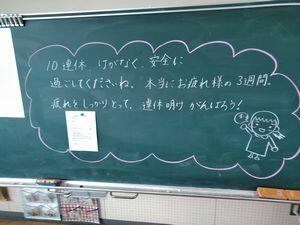 10連休 けがなく、安全に
過ごしてくださいね。本当にお疲れ様の3週間。
疲れをしっかりとって、連休明けがんばろう！